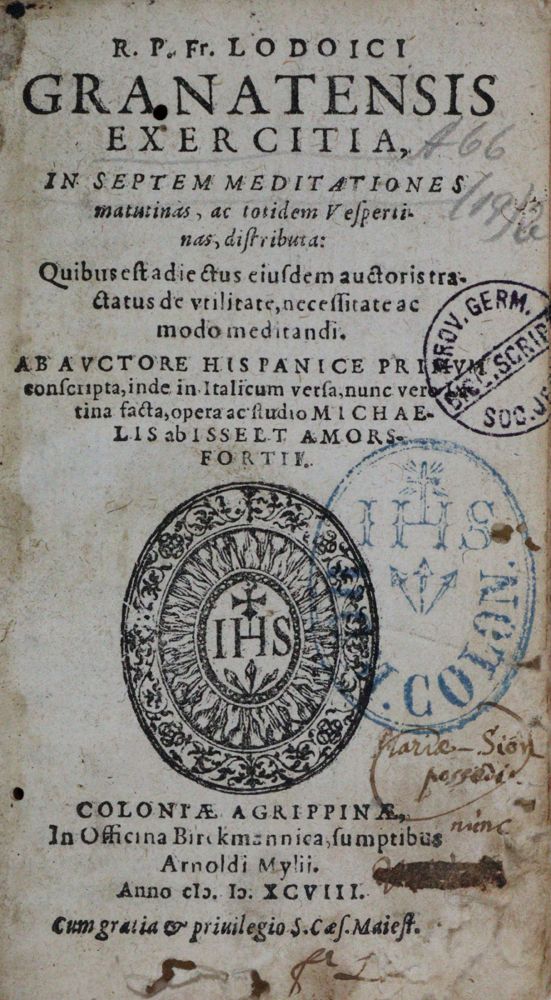 R. P. Fr. LODOICI
GRANATENSIS
EXERCITIA,
IN SEPTEM MEDITATIONES
matutinas, ac totidem Veſperti-
nas, diſtributa:
Quibus eſt adiectus eiuſdem auctoris tra-
ctatus de vtilitate, neceſſitate ac
modo meditandi.
AB AVCTORE HISPANICE PRIMVM
conſcripta, inde in Italicum verſa, nunc vero
tina facta, opera ac ſtudio MICHAE-
LIS ab ISSELT AMORS-
FORTII.
A66
PROV. GERM.
SCRIPT
SOC. J
IHS
COLON.
IHS
Mariæ - Sion
nunc
COLONIÆ AGRIPPINÆ,
In Officina Birckmannica, ſumptibus
Arnoldi Mylii.
Anno cIɔ. Iɔ. XCVIII.
Cum gratia & priuilegio S. Cæſ. Maieſt.